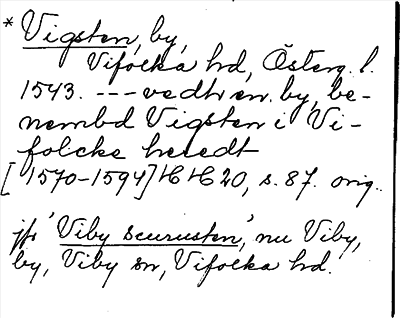 * Vigsten, by,
Vifolka hd, Österg. l.
1543. --- vedh en. by, be-
nembd Vigsten i Vi-
folcke heredt
[1570-1594] HH 20, s. 87. orig.
jfr 'Viby scurusten', nu Viby,
by, Viby sn, Vifolka hd.